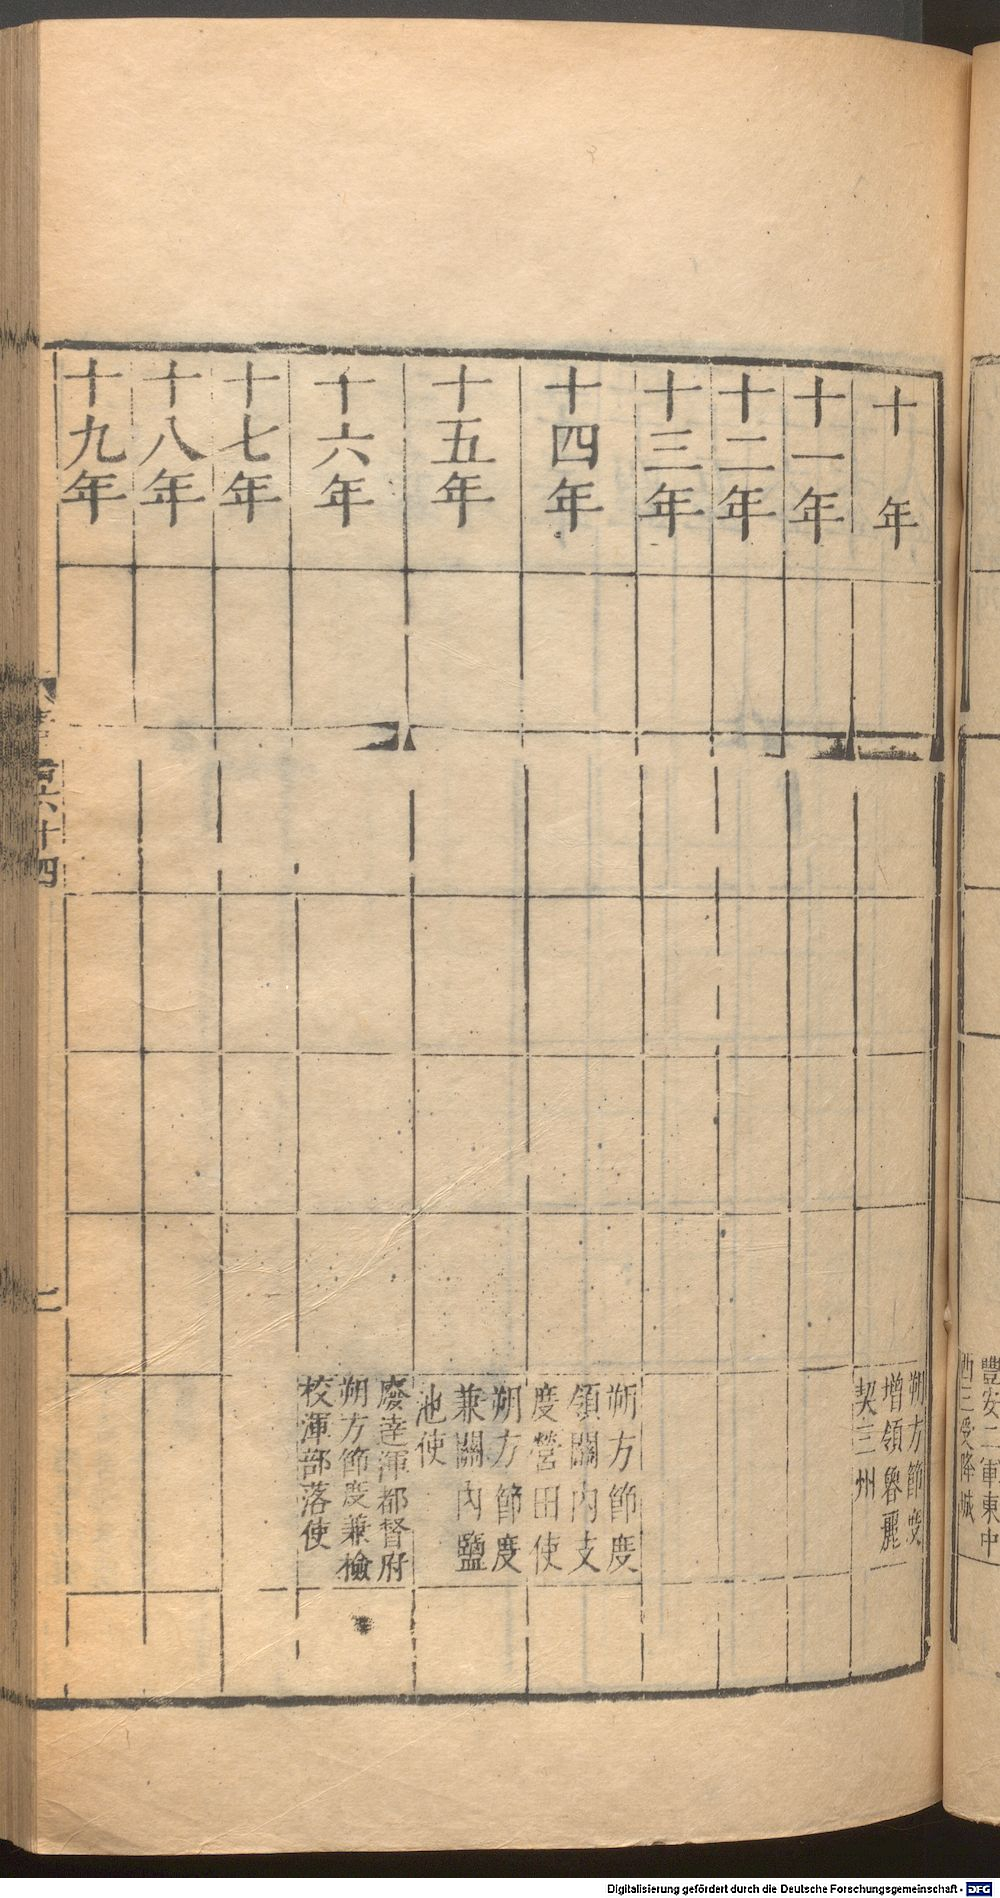 十年
朔方節度
增領魯麗
契三州
十一年
十二年
十三年
十四年
朔方節度
領關內支
度營田使
十五年
朔方節度
兼關內鹽
池使
十六年
廢達渾都督府
朔方節度兼檢
校渾部落使
十七年
十八年
十九年
百六十四
七
豐安二軍東中
西三受降城
Digitalisierung gefördert durch die Deutsche Forschungsgemeinschaft - DFG